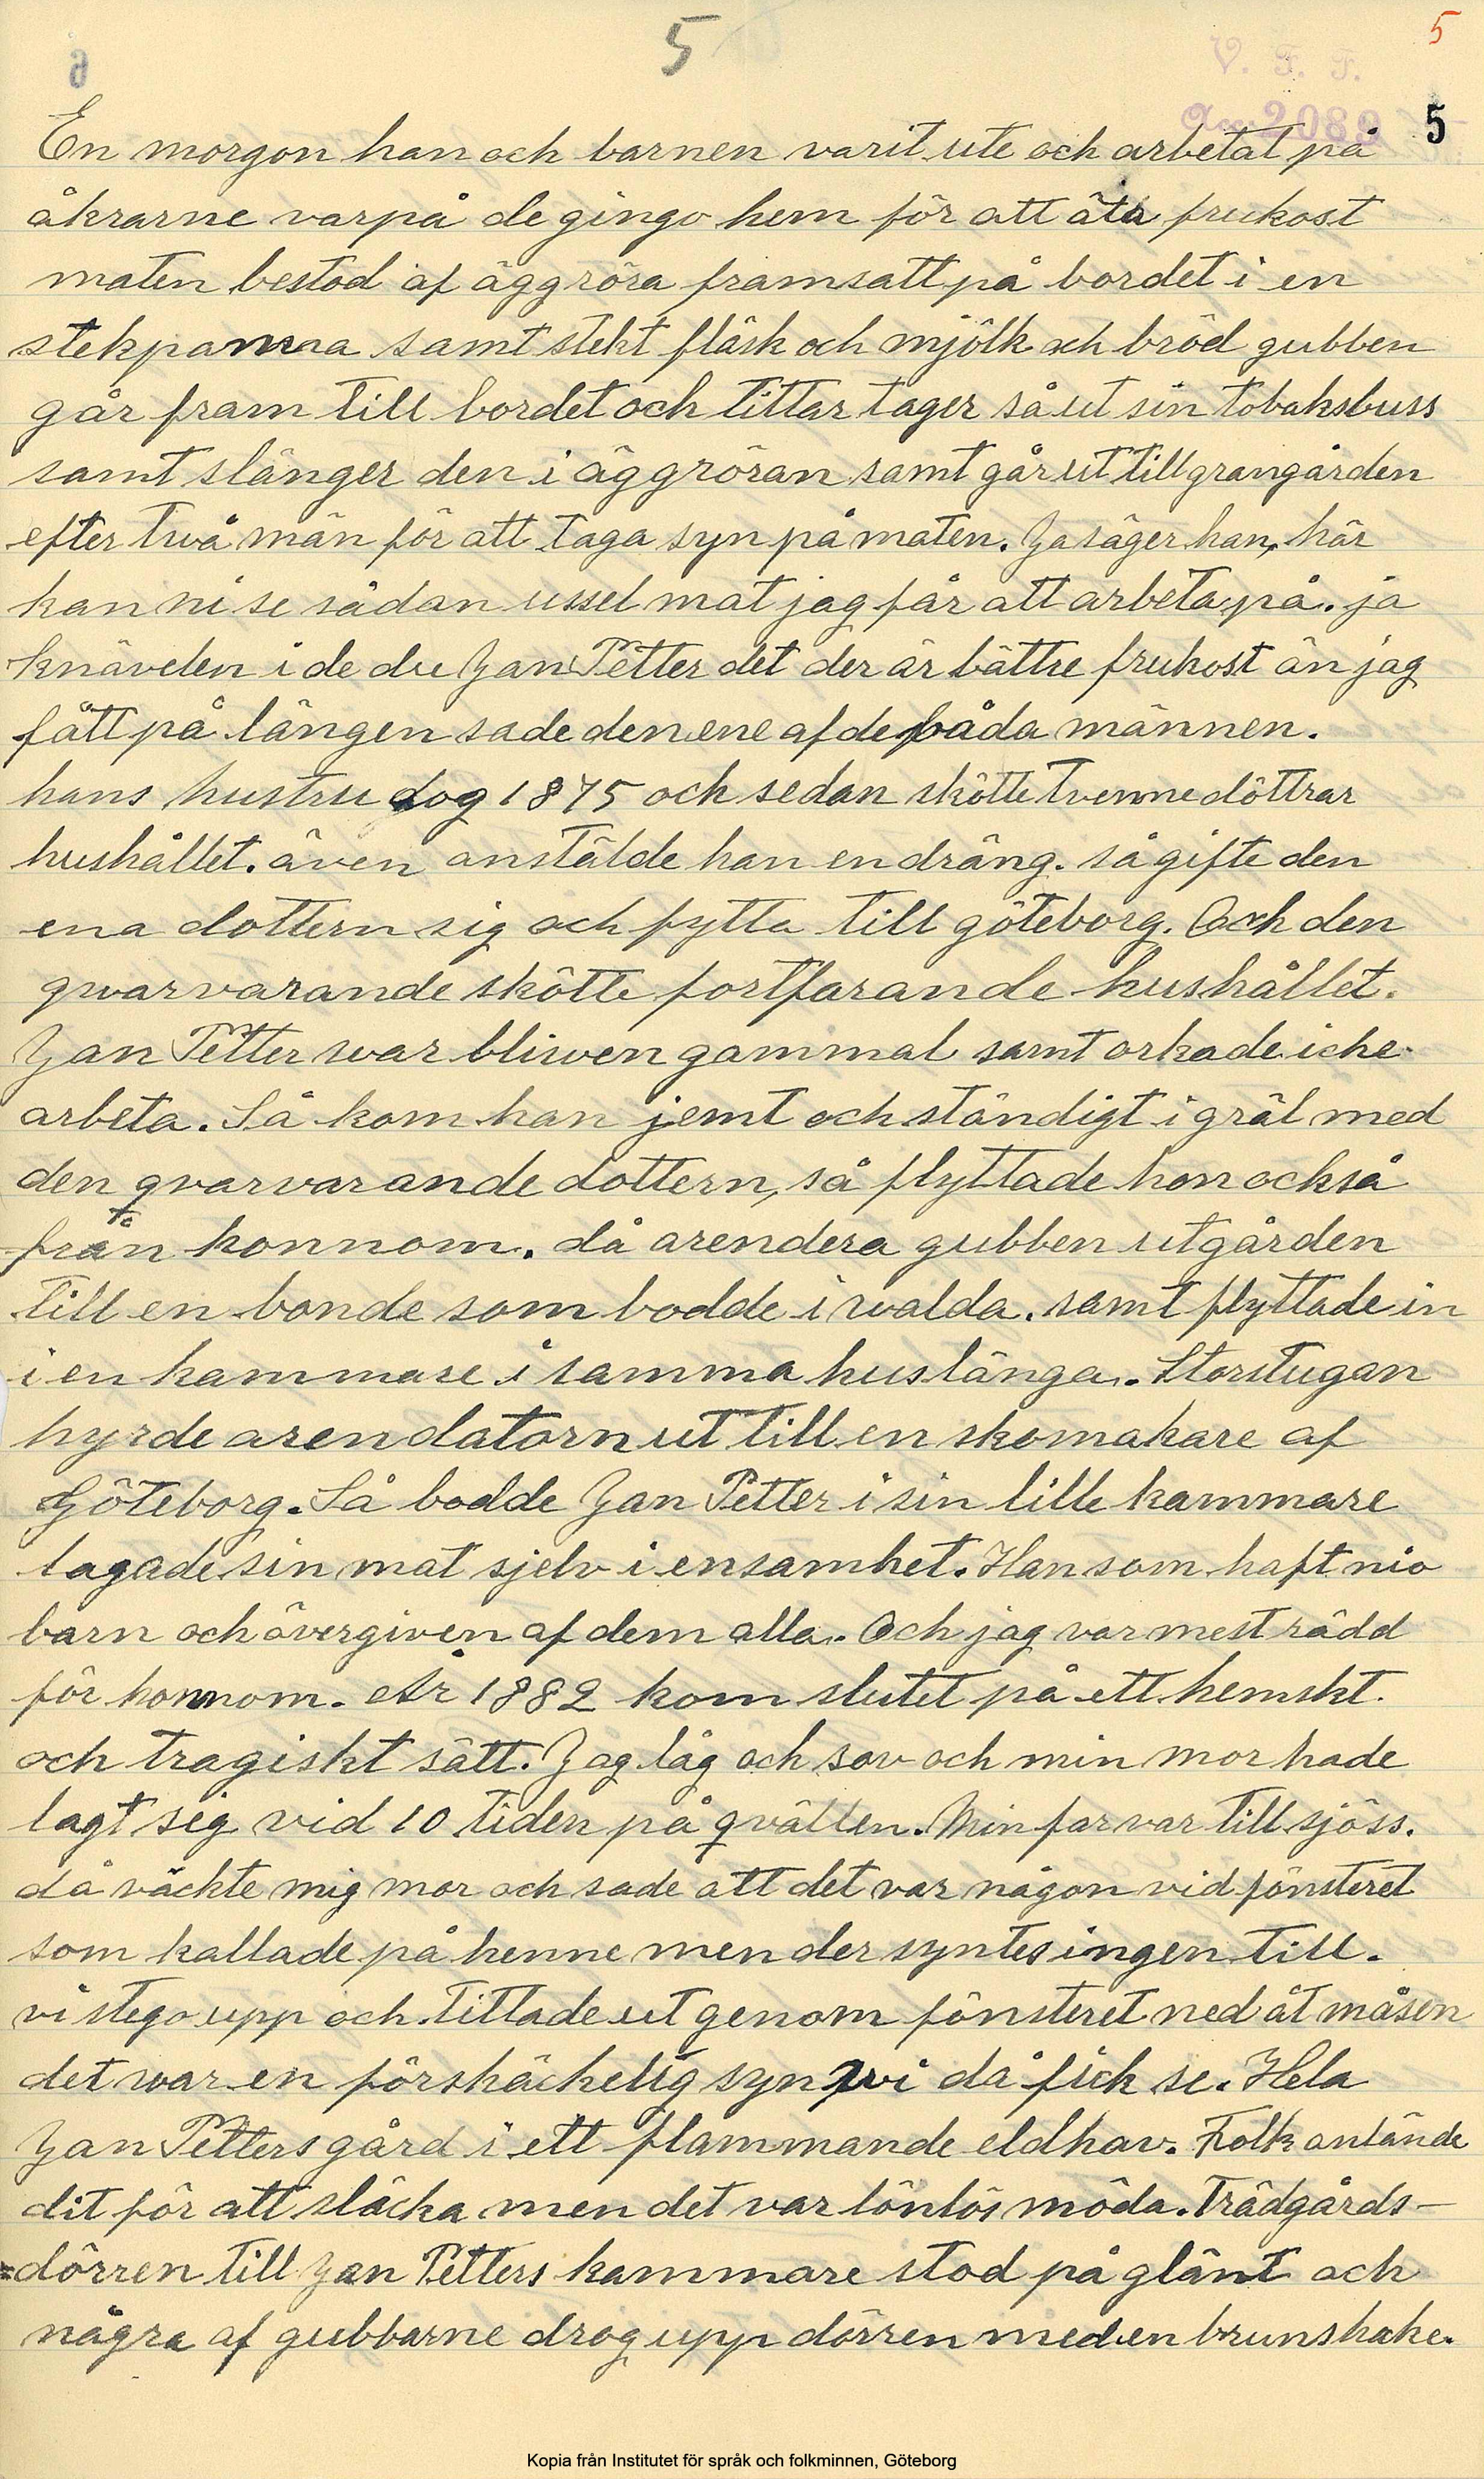 5
5
V. F. F.
Acc 2089
5
En morgon han och barnen varit ute och arbetat på
åkrarne varpå de gingo hem för att äta frukost
maten bestod af äggröra framsatt på bordet i en
stekpanna samt stekt fläsk och mjölk och bröd gubben
går fram till bordet och tittar tager så ut sin tobaksbuss
samt slänger den i äggröran samt går ut till grangården
efter två män för att taga syn på maten. Ja säger han, här
kan ni se sådan ussel mat jag får att arbeta på. ja
knävelen i de du Jan Petter det der är bättre frukost än jag
fått på längen sade den ene af de båda männen.
hans hustru dog 1875 och sedan skötte tvenne döttrar
hushållet. även anstälde han en dräng. så gifte den
ena dottern sig och fytta till göteborg. Och den
qvarvarande skötte fortfarande hushållet.
Jan Petter war bliwen gammal samt orkade icke
arbeta. Så kom han jemt och ständigt i gräl med
den qvarvarande dottern, så flyttade hon också
från honnom. då arendera gubben ut gården
till en bonde som bodde i walda. samt flyttade in
i en kammare i samma huslänga. Storstugan
hyrde arendatorn ut till en skomakare af
Göteborg. Så bodde Jan Petter i sin lille kammare
lagade sin mat sjelv i ensamhet. Han som haft nio
barn och övergiven af dem alla. Och jag var mest rädd
för honnom. År 1882 kom slutet på ett hemskt
och tragiskt sätt. Jag låg och sov och min mor hade
lagt sig vid 10 tiden på qvällen. Min far var till sjöss.
då väckte mig mor och sade att det var någon vid fönsteret
som kallade på henne men der syntes ingen till.
vi stego upp och tittade ut genom fönsteret ned åt måsen
det war en förskäckelig syn vi då fick se. Hela
Jan Petters gård i ett flammande eldhav. Folk anlände
dit för att släcka men det var lönlös möda. Trädgårds-
=dörren till Jan Petters kammare stod på glänt och
några af gubbarne drog upp dörren med en brunshake.
Kopia från Institutet för språk och folkminnen, Göteborg